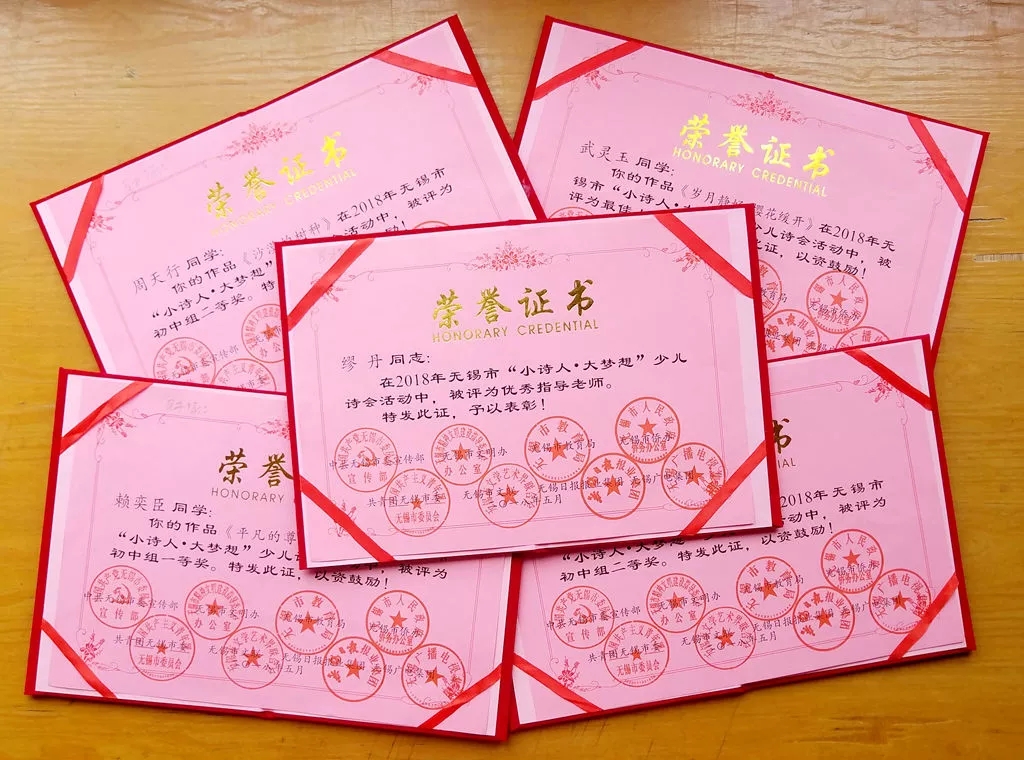 荣誉证书
HONORARY CREDENTIAL
周天行 同学:
你的作品《沙漠的树种》在2018年无锡市
“小诗人·大梦想” 活动中,被评为
初中组二等奖。特发
荣誉证书
HONORARY CREDENTIAL
武灵玉 同学:
你的作品《岁月静好 樱花缓开》在2018年无
锡市“小诗人·大 儿诗会活动中,被
评为最佳 此证,以资鼓励!
荣誉证书
HONORARY CREDENTIAL
缪 丹 同志:
在2018年无锡市“小诗人·大梦想”少儿
诗会活动中,被评为优秀指导老师。
特发此证,予以表彰!
中共无锡市委宣传部 无锡市文明办 无锡市教育局 无锡市侨办
共青团无锡市委 无锡市文联 无锡日报报业集团 无锡广电集团
二〇一八年五月
荣誉
HONORARY
赖奕臣 同学:
你的作品《平凡的尊
“小诗人·大梦想”少儿诗 被评为
初中组一等奖。特发此证,以资鼓励!
中共无锡市委宣传部 无锡市文明办 无锡市教育局 无锡市侨办
共青团无锡市委 无锡市文联 无锡日报报业集团 无锡广电集团
五月
书
2018年无锡市
“小诗人·大梦想”少儿 活动中,被评为
初中组二等奖。特发此证,以资鼓励!
中共无锡市委宣传部 无锡市文明办 无锡市教育局 无锡市侨办
共青团无锡市委 无锡市文联 无锡日报报业集团 无锡广电集团
五月